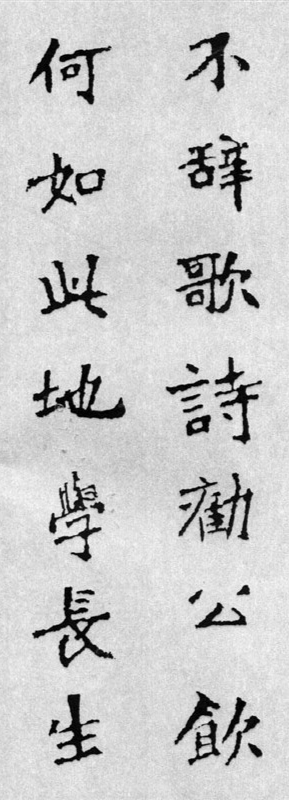 不辭歌詩勸公飲
何如此地學長生